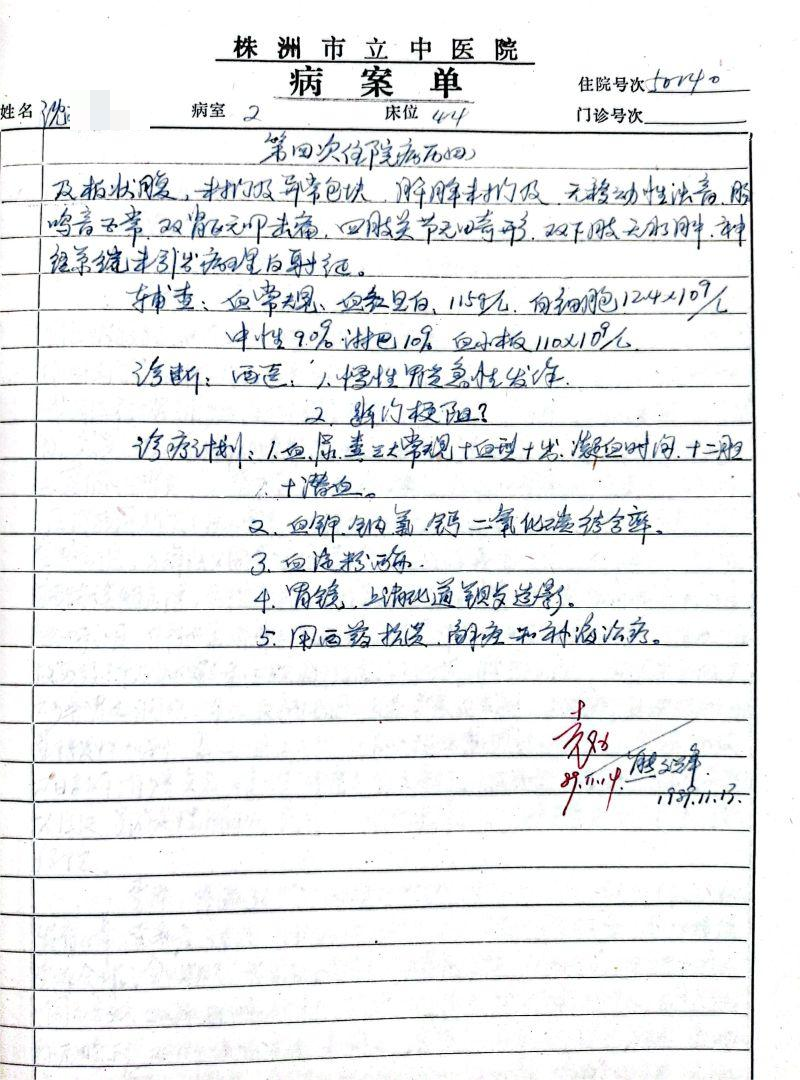 株洲市立中医院
病案单
住院号次 50140
姓名 沈 病室 2 床位 44 门诊号次
第四次住院病历(四)
及板状腹,未扪及异常包块,肝脾未扪及,无移动性浊音,肠
鸣音正常,双肾区无叩击痛,四肢关节无畸形,双下肢无水肿,神
经系统未引出病理反射征。
辅查:血常规、血红蛋白,115g/L,白细胞12.4×10⁹/L
中性90%淋巴10% 血小板110×10⁹/L
诊断:西医:1.慢性胃炎急性发作.
2.幽门梗阻?
诊疗计划:1.血、尿、粪三大常规+血型+出、凝血时间,+二胆
+潜血。
2.血钾、钠、氯、钙二氧化碳结合率。
3.血淀粉酶.
4.胃镜,上消化道钡餐造影。
5.用西药抗炎、对症和补液治疗。
89.11.14
1989.11.13.